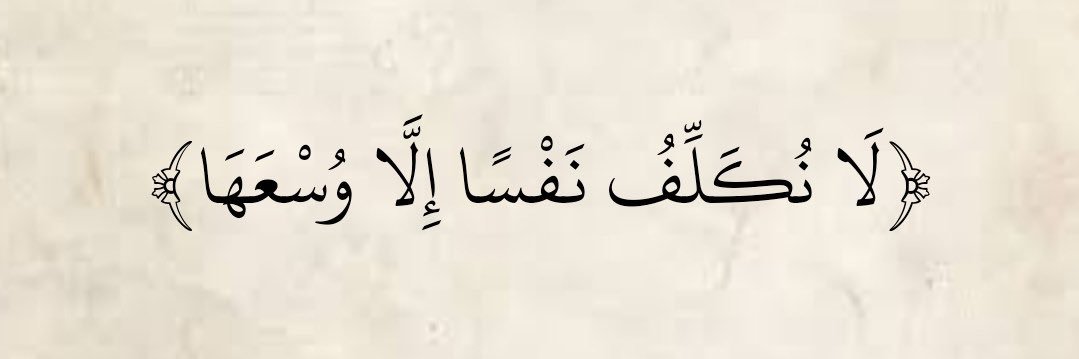 ﴿لَا نُكَلِّفُ نَفْسًا إِلَّا وُسْعَهَا﴾